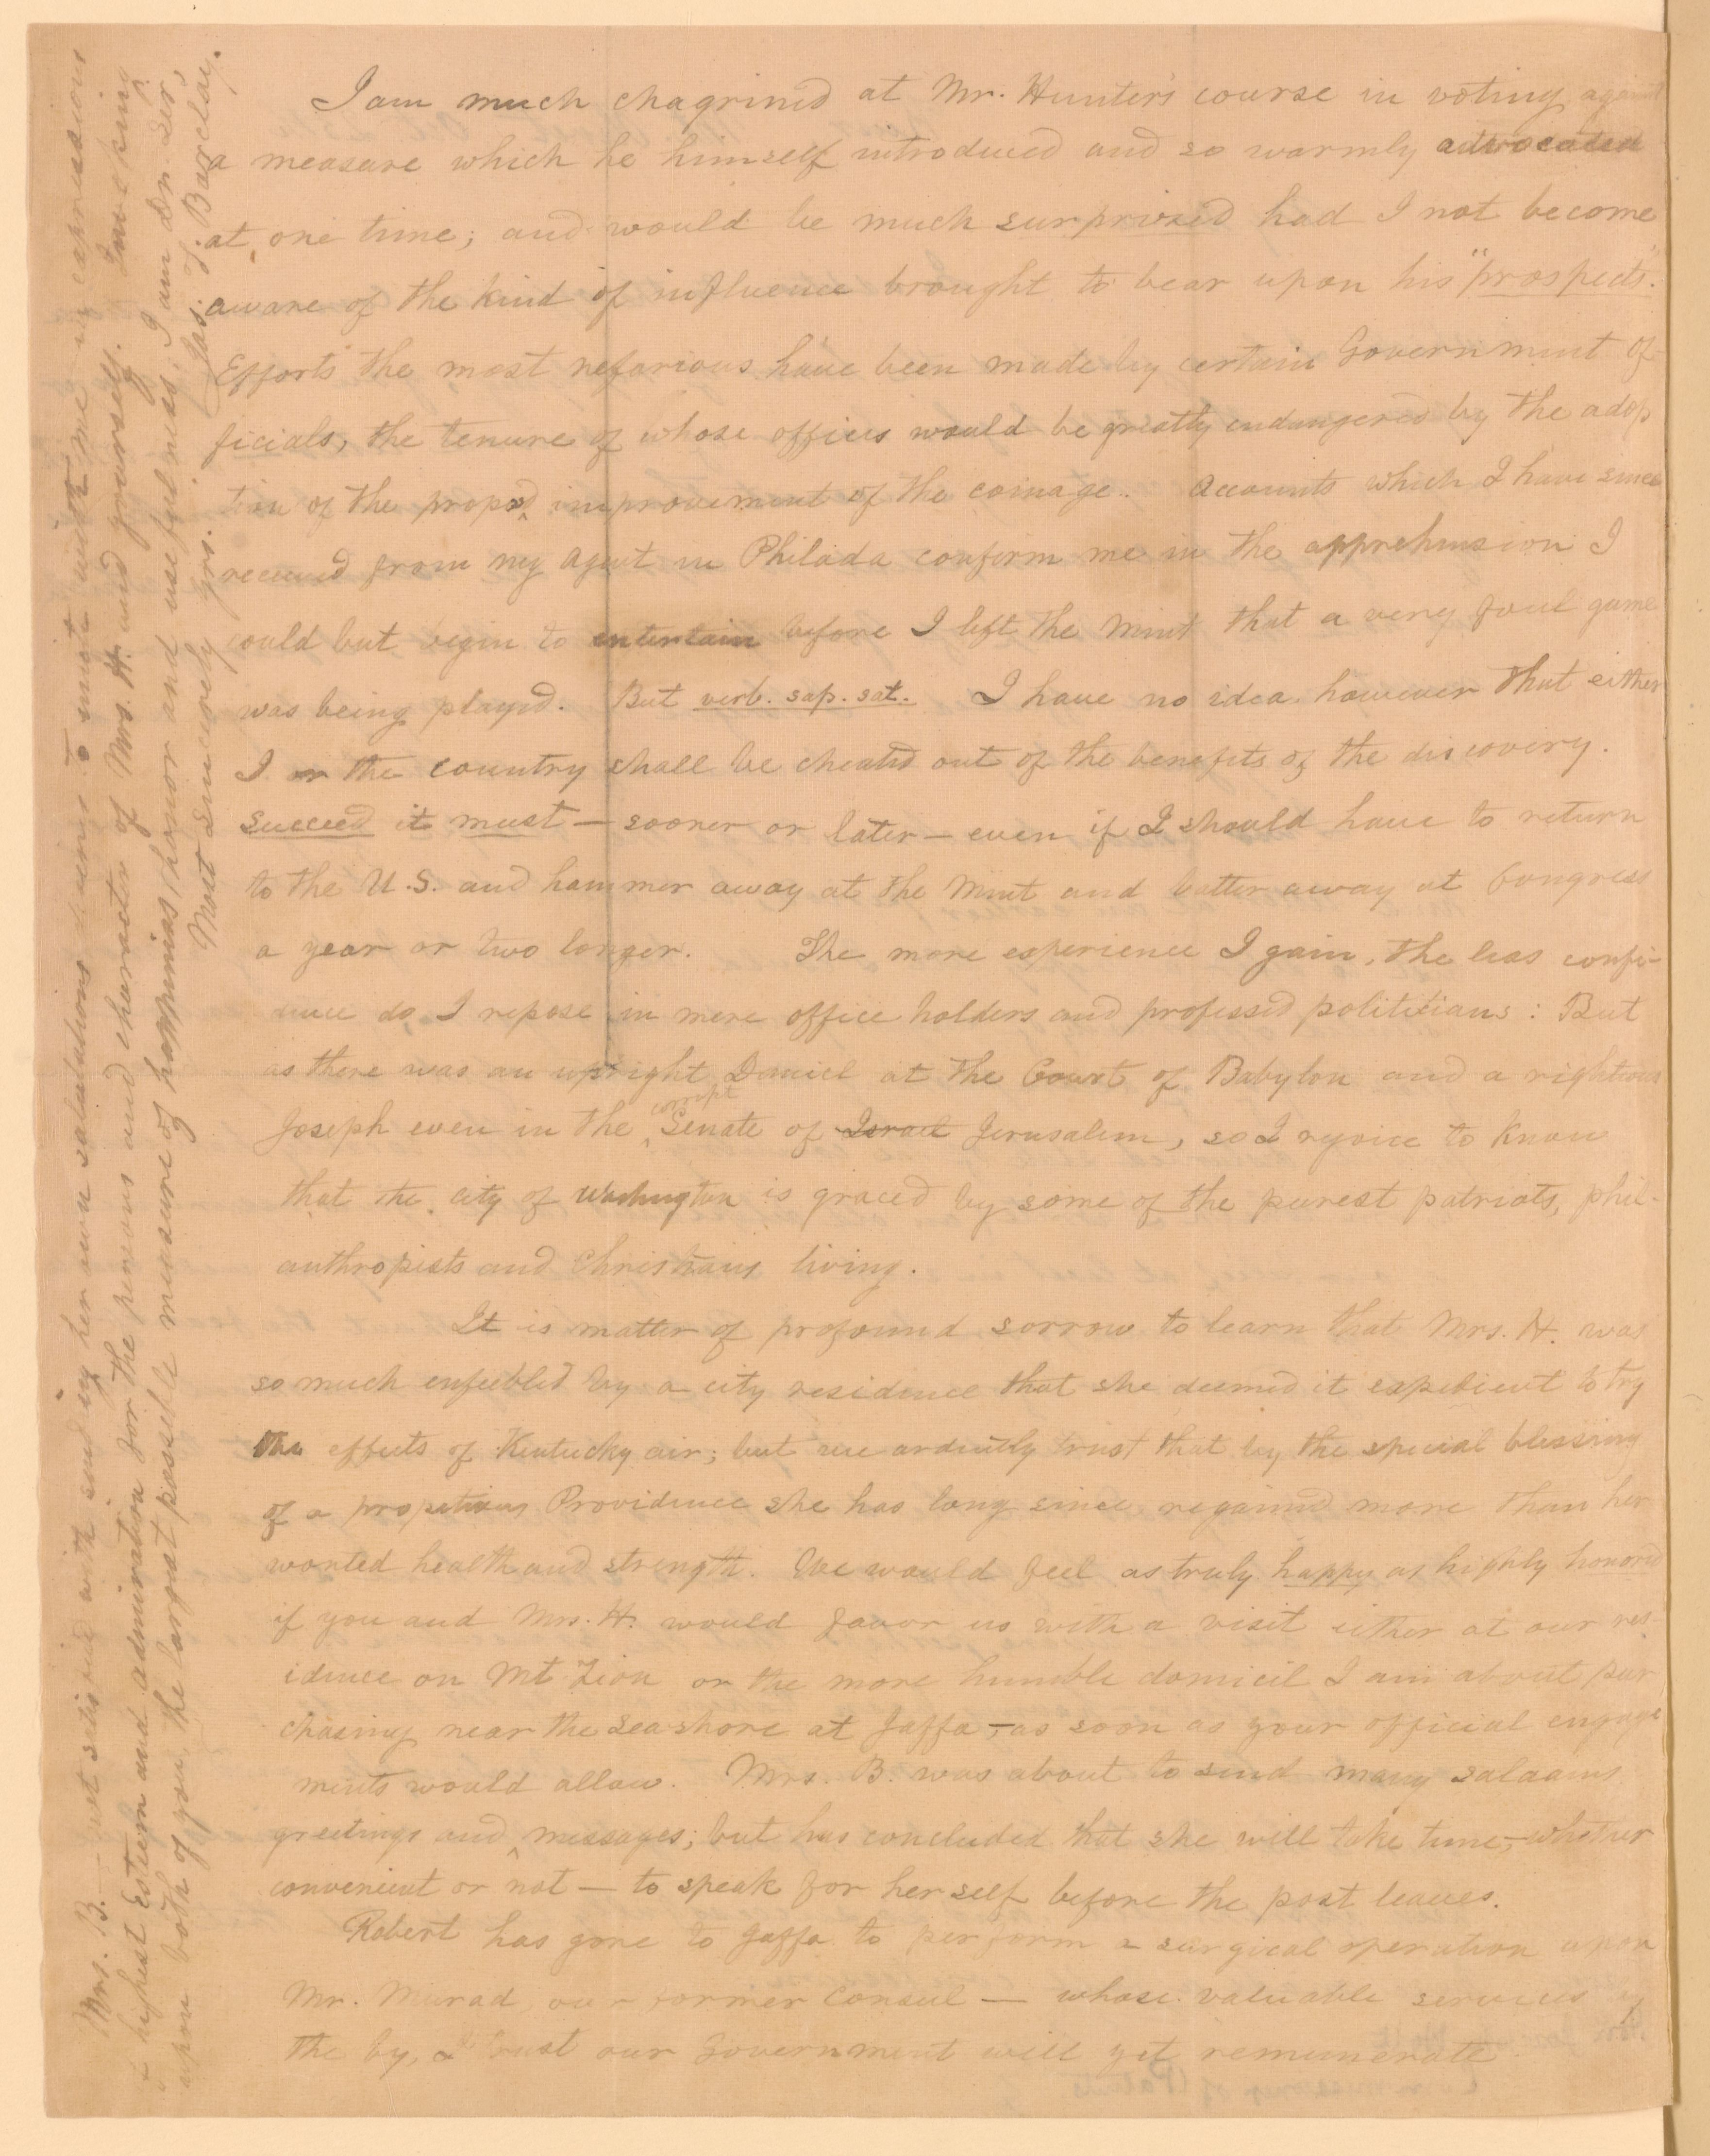 I am much chagrined at Mr. Hunter's course in voting against
a measure which he himself introduced and so warmly advocated
at one time; and would be much surprized had I not become
aware of the kind of influence brought to bear upon his "prospects".
Efforts the most nefarious have been made by certain Government Of-
ficials, the tenure of whose offices would be greatly endangered by the adop
tion of the propos'd improvement of the coinage. Accounts which I have since
received from my agent in Philada confirm me in the apprehension I
could but begin to entertain before I left the Mint that a very foul game
was being played. But verb. sap. sat. I have no idea however that either
I or the country shall be cheated out of the benefits of the discovery.
Succeed it must — sooner or later — even if I should have to return
to the U.S. and hammer away at the Mint and batter away at Congress
a year or two longer. The more experience I gain, the less confi-
dence do I repose in mere office holders and professed politicians: But
as there was an upright Daniel at the Court of Babylon and a righteous
Joseph even in the corrupt Senate of Israel Jerusalem, so I rejoice to know
that the city of Washington is graced by some of the purest patriots, phil-
anthropists and Christians living.
It is matter of profound sorrow to learn that Mrs. H. was
so much enfeebled by a city residence that she deemed it expedient to try
the effects of Kentucky air; but we ardently trust that by the special blessing
of a propitious Providence she has long since regained more than her
wonted health and strength. We would feel as truly happy as highly honored
if you and Mrs. H. would favor us with a visit either at our res-
idence on Mt Zion or the more humble domicil I am about pur
chasing near the seashore at Jaffa — as soon as your official engage
ments would allow. Mrs. B. was about to send many salaams
greetings and messages; but has concluded that she will take time — whether
convenient or not — to speak for herself before the post leaves.
Robert has gone to Jaffa to perform a surgical operation upon
Mr. Murad our former Consul — whose valuable services by
the by, I trust our Government will yet remunerate.
Mrs. B. — not satisfied with sending her own salutations to unite with me in expressions
of highest esteem and admiration for the persons and character of Mrs. H. and yourself. Invoking
upon both of you, the largest possible measure of happiness, honor and usefulness, I am Dr. Sir,
Most Sincerely yrs. Jas. T. Barclay.